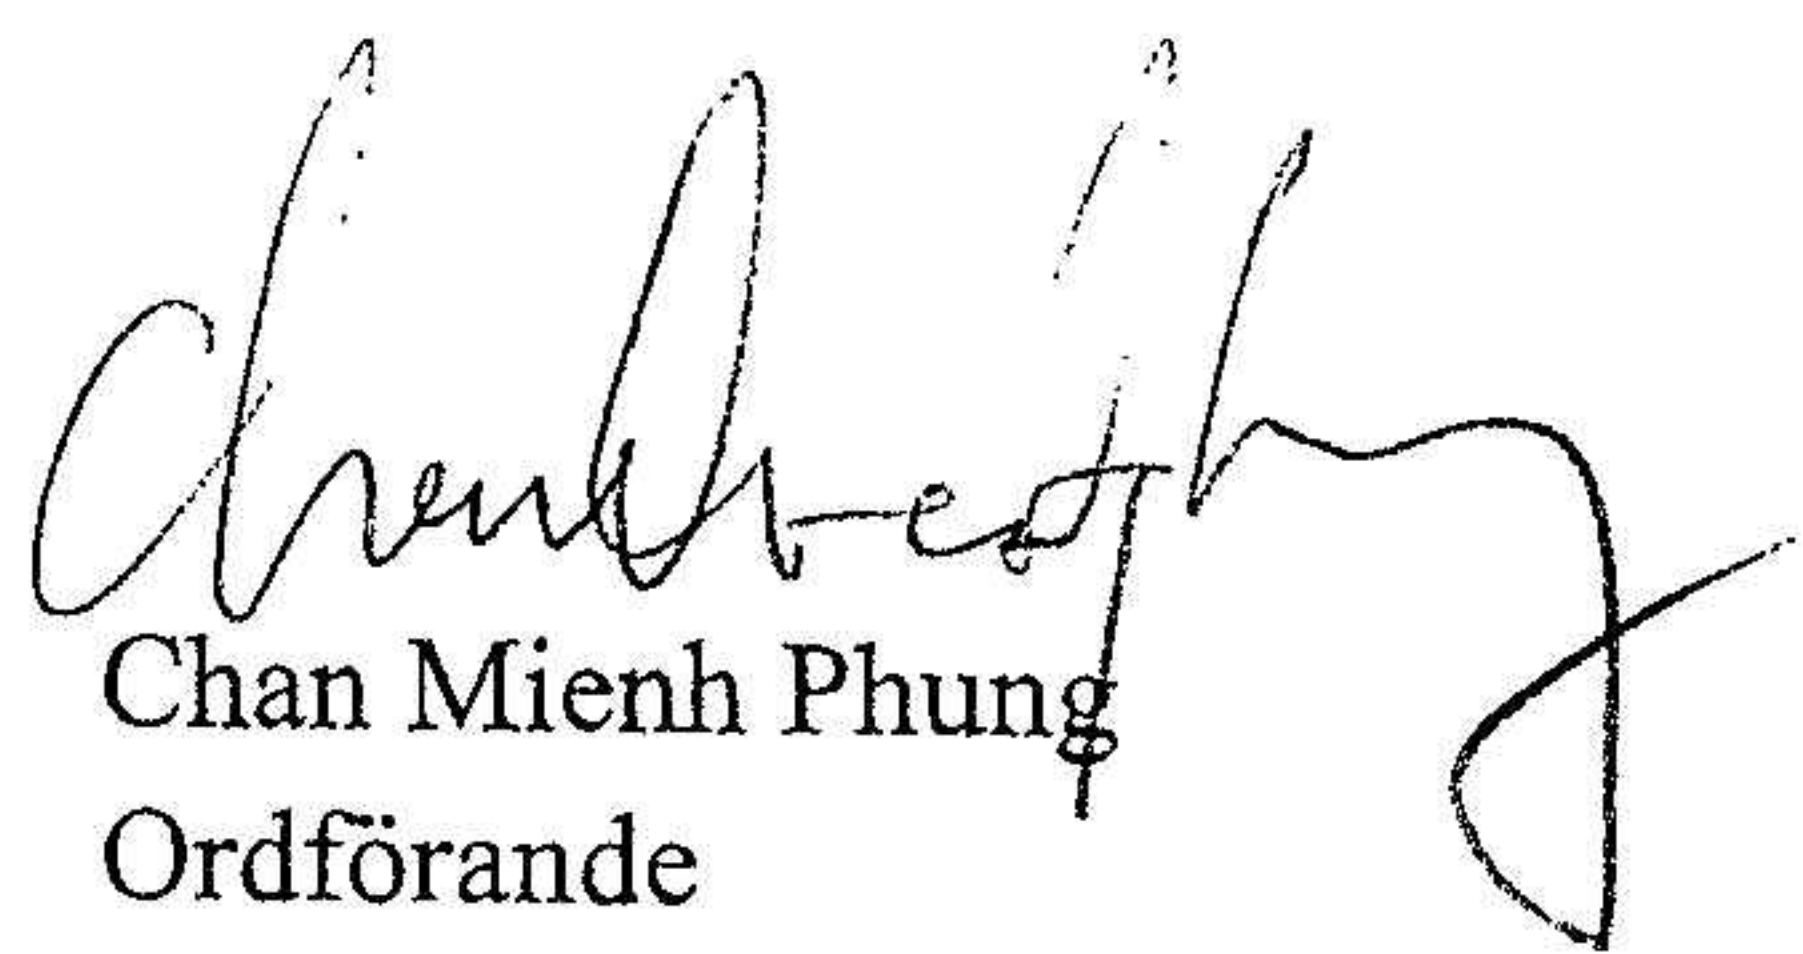 Chan Mienh Phung
Ordförande